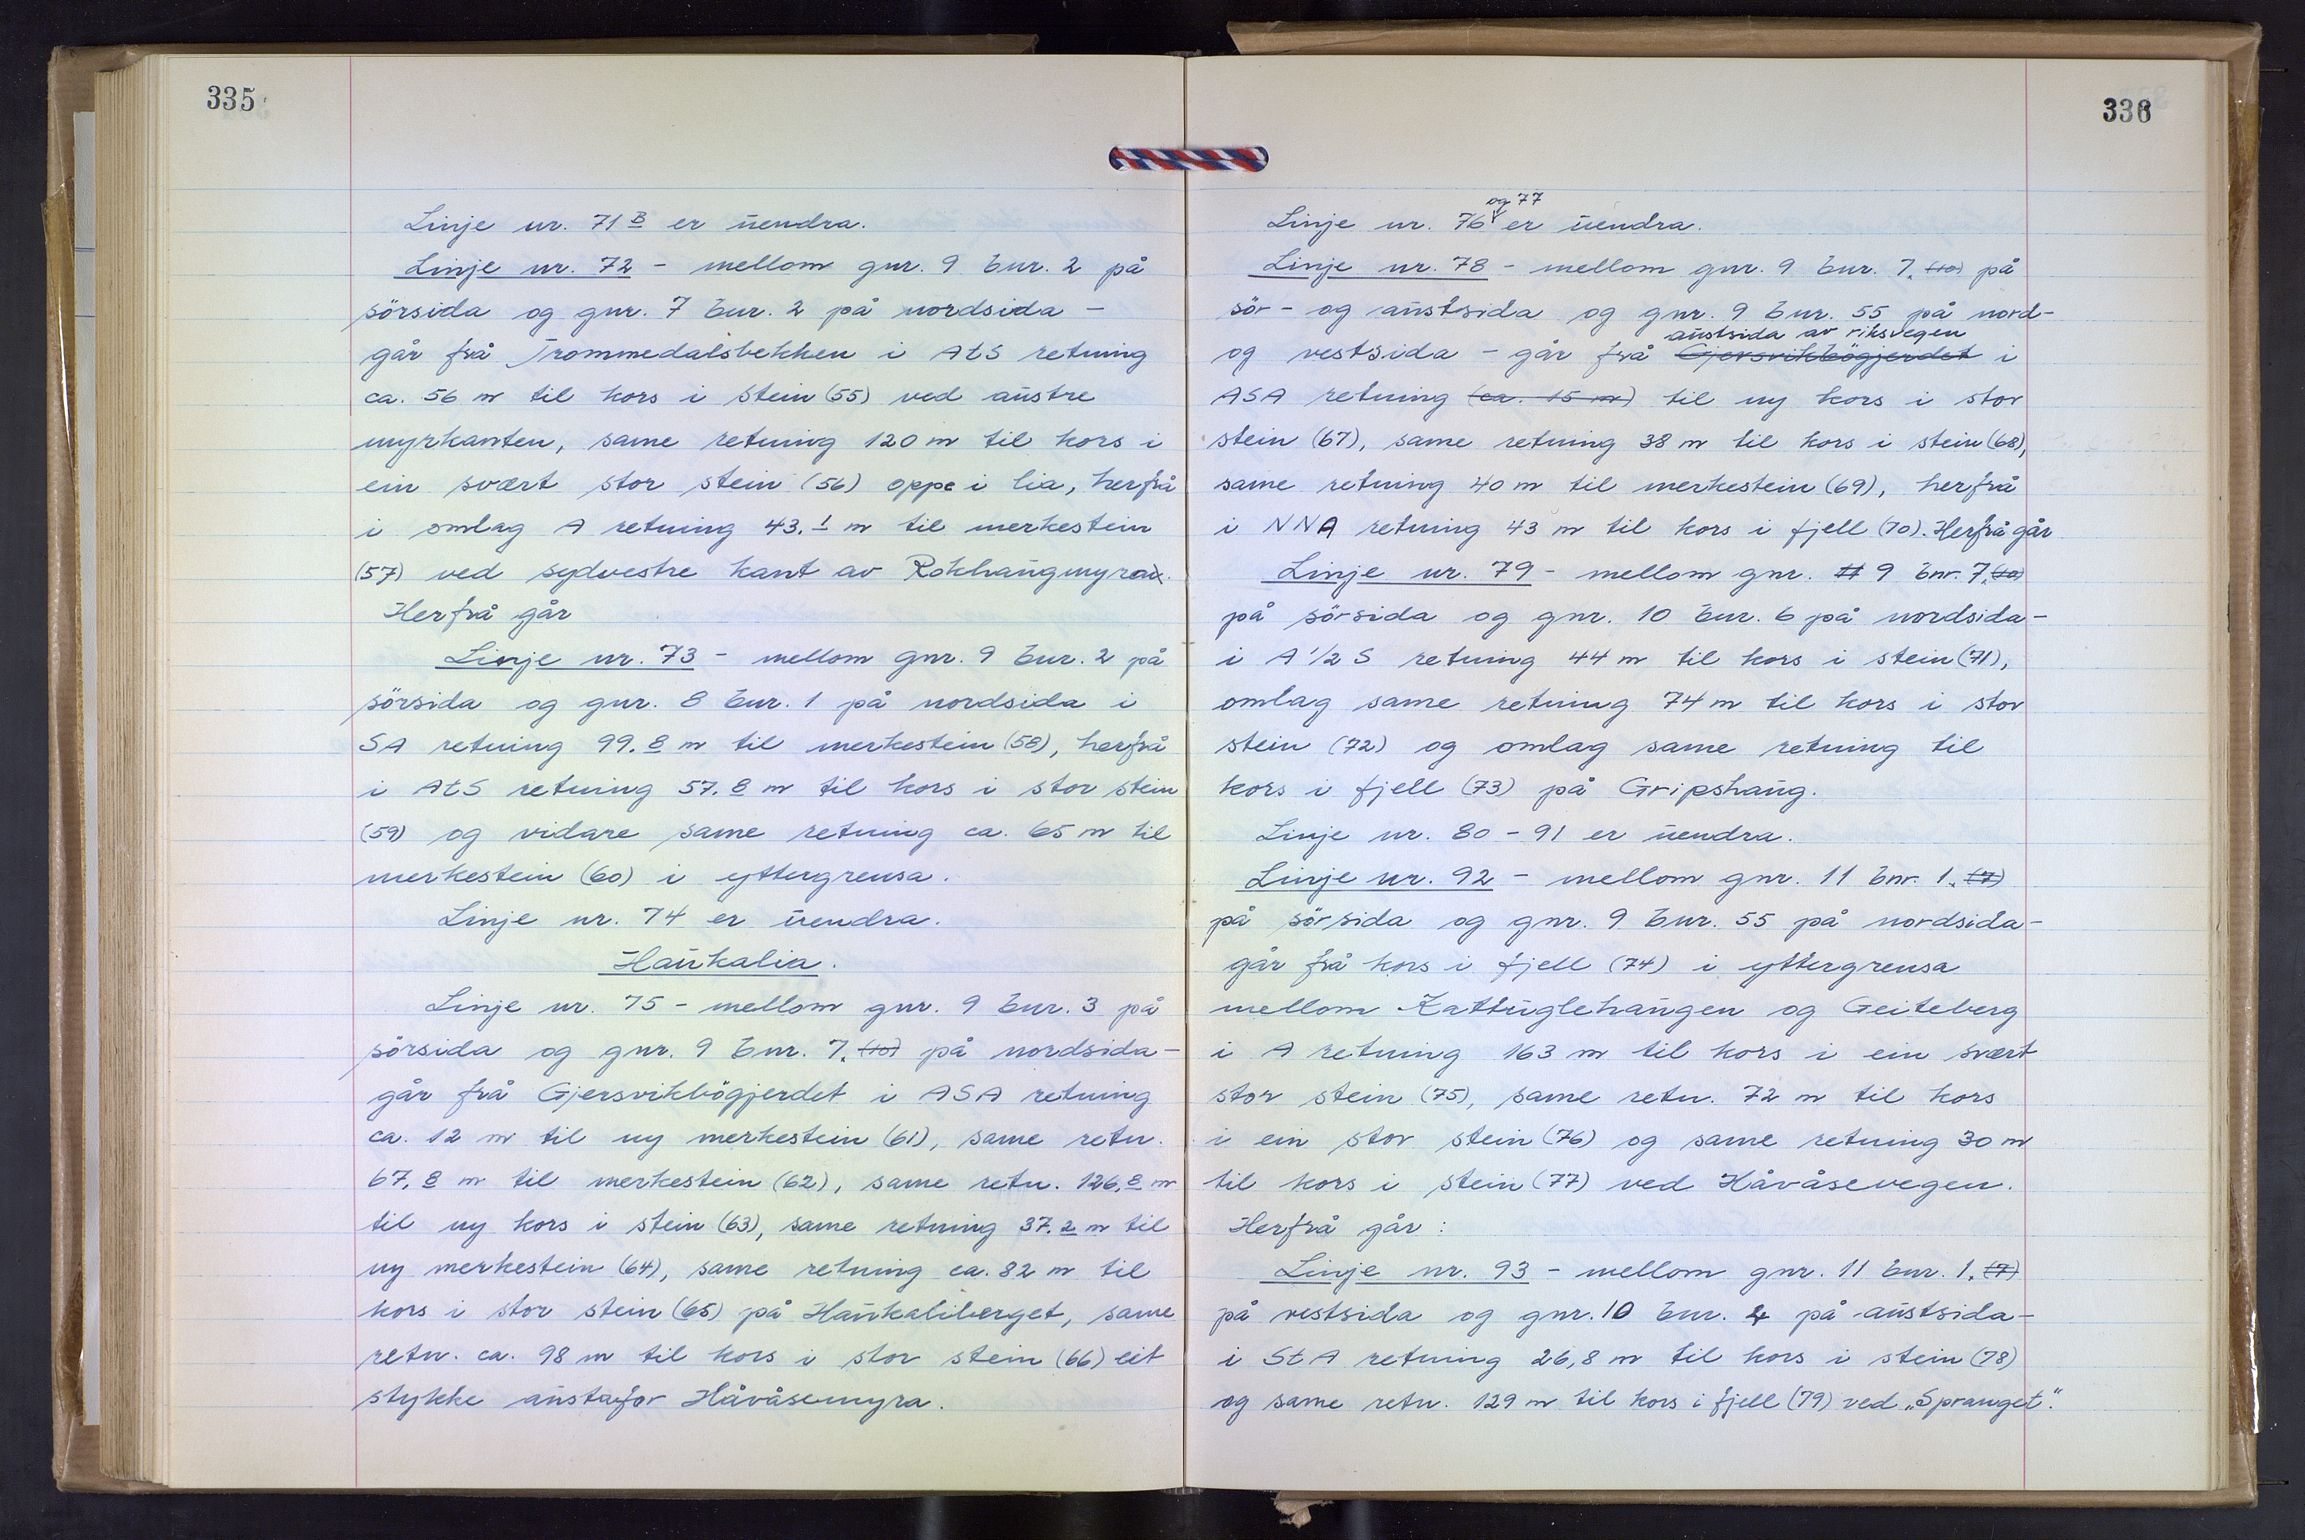 335
Linje nr. 71 B er uendra.
Linje nr. 72 - mellom gnr. 9 bnr. 2 på
sörsida og gnr. 7 bnr. 2 på nordsida -
går frå Trommedalsbekken i AtS retning
ca. 56 m til kors i stein (55) ved austre
myrkanten, same retning 120 m til kors i
ein svært stor stein (56) oppe i lia, herfrå
i omlag A retning 43.1 m til merkestein
(57) ved sydvestre kant av Rokhaugmyra.
Herfrå går
Linje nr. 73 - mellom gnr. 9 bnr. 2 på
sörsida og gnr. 8 bnr. 1 på nordsida i
SA retning 99.8 m til merkestein (58), herfrå
i AtS retning 57.8 m til kors i stor stein
(59) og vidare same retning ca. 65 m til
merkestein (60) i yttergrensa.
Linje nr. 74 er uendra.
Haukalia.
Linje nr. 75 - mellom gnr. 9 bnr. 3 på
sörsida og gnr. 9 bnr. 7, (10) på nordsida -
går frå Gjersvikbögjerdet i ASA retning
ca. 12 m til ny merkestein (61), same retn.
67.8 m til merkestein (62), same retn. 126.8 m
til ny kors i stein (63), same retning 37.2 m til
ny merkestein (64), same retning ca. 82 m til
kors i stor stein (65) på Haukaliberget, same
retn. ca. 98 m til kors i stor stein (66) eit
stykke austafor Håvåsemyra.
336
og 77
Linje nr. 76 er uendra.
Linje nr. 78 - mellom gnr. 9 bnr. 7, (10) på
sör- og austsida og gnr. 9 bnr. 55 på nord-
austsida av riksvegen
og vestsida - går frå Gjersvikbögjerdet i
ASA retning (ca. 15 m) til ny kors i stor
stein (67), same retning 38 m til kors i stein (68),
same retning 40 m til merkestein (69), herfrå
i NNA retning 43 m til kors i fjell (70). Herfrå går
Linje nr. 79 - mellom gnr. 11 9 bnr. 7, (10)
på sörsida og gnr. 10 bnr. 6 på nordsida -
i A 1/2 S retning 44 m til kors i stein (71),
omlag same retning 74 m til kors i stor
stein (72) og omlag same retning til
kors i fjell (73) på Gripshaug.
Linje nr. 80 - 91 er uendra.
Linje nr. 92 - mellom gnr. 11 bnr. 1, (7)
på sörsida og gnr. 9 bnr. 55 på nordsida -
går frå kors i fjell (74) i yttergrensa
mellom Kattuglehaugen og Geiteberg
i A retning 163 m til kors i ein svært
stor stein (75), same retn. 72 m til kors
i ein stor stein (76) og same retning 30 m
til kors i stein (77) ved Håvåsevegen.
Herfrå går :
Linje nr. 93 - mellom gnr. 11 bnr. 1, (7)
på vestsida og gnr. 10 bnr. 4 på austsida -
i StA retning 26,8 m til kors i stein (78)
og same retn. 129 m til kors i fjell (79) ved „Spranget".